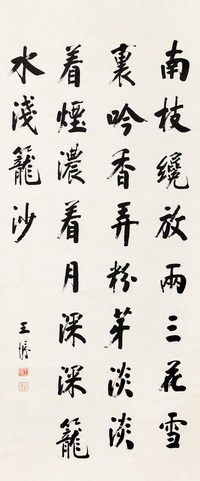 南枝纔放兩三花雪
裏吟香弄粉芽淡淡
着煙濃着月深深籠
水淺籠沙
王